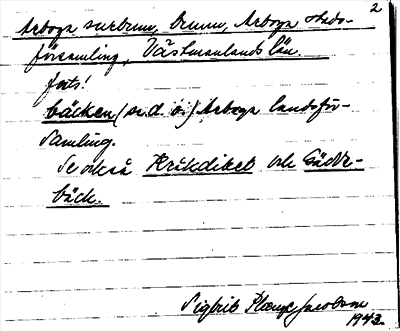 2
Arboga surbrunn, Brunn, Arboga stads-
församling, Västmanlands län.
forts!
bäcken (se d. o.) Arboga landsför-
samling.
Se också Kråkdiket och Gädde-
bäck.
Sigbrit Plænge Jacobson
1943.